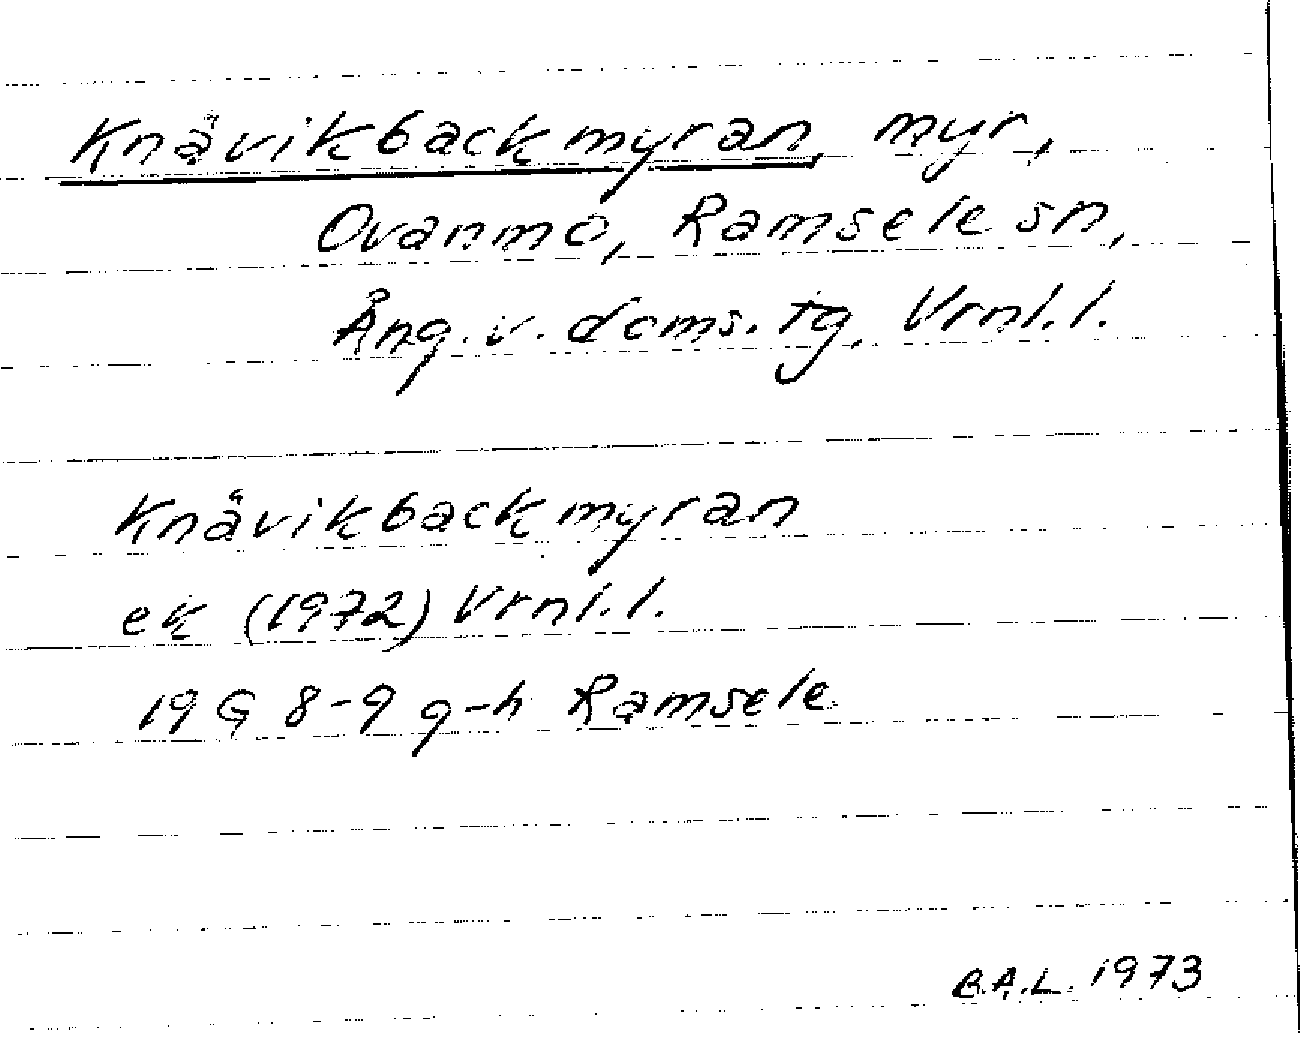 Knävikbackmyran, myr,
Ovanmo, Ramsele sn,
Ång. v. doms. tg, Vrnl. l.
Knävikbackmyran
ek (1972) Vrnl. l.
19 G 8-9 g-h Ramsele
B.A.L. 1973